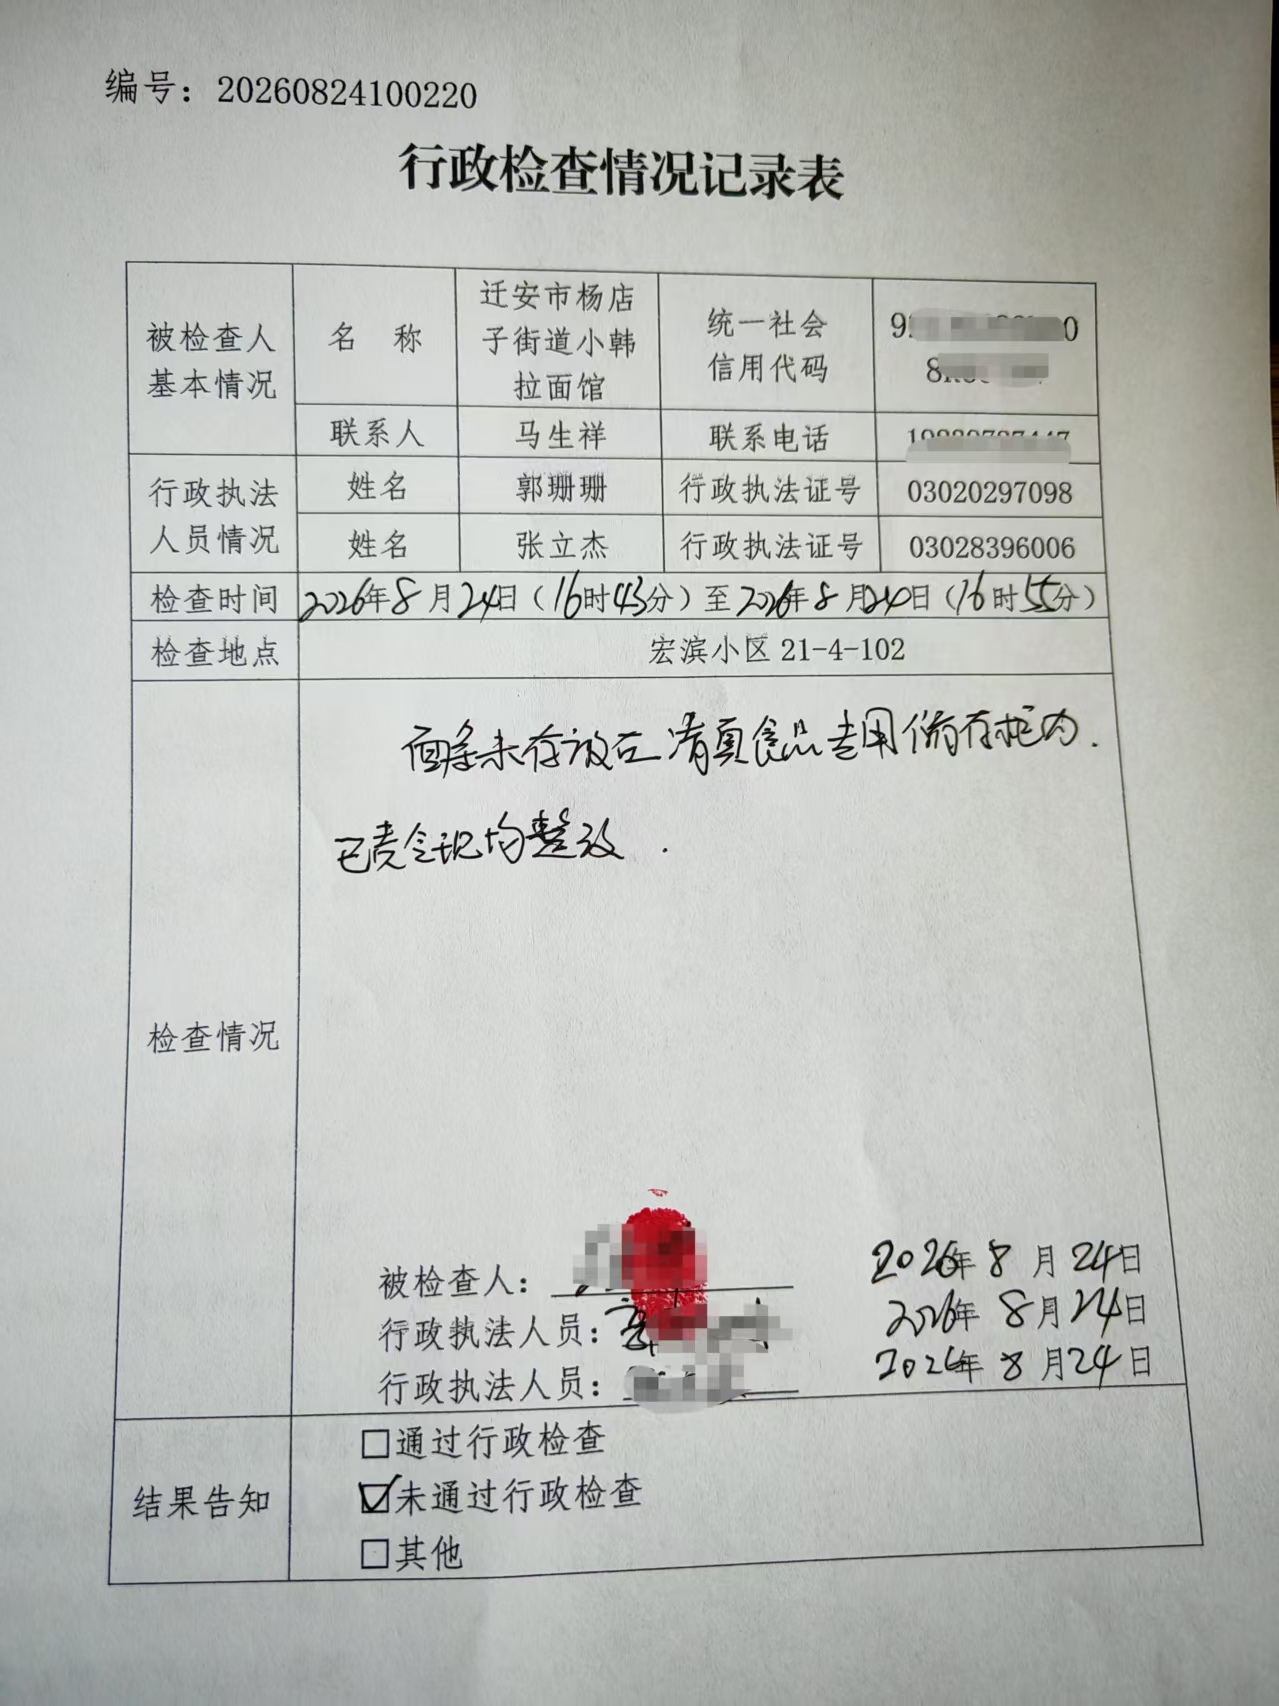 编号：20260824100220
行政检查情况记录表
被检查人基本情况
名 称
迁安市杨店子街道小韩拉面馆
统一社会信用代码
联系人
马生祥
联系电话
行政执法人员情况
姓名
郭珊珊
行政执法证号
03020297098
姓名
张立杰
行政执法证号
03028396006
检查时间
2026年8月24日（16时43分）至2026年8月24日（16时55分）
检查地点
宏滨小区 21-4-102
检查情况
面条未存放在清真食品专用储存柜内.
已责令现均整改.
被检查人： 2026年8月24日
行政执法人员： 2026年8月24日
行政执法人员： 2026年8月24日
结果告知
□通过行政检查
☑未通过行政检查
□其他